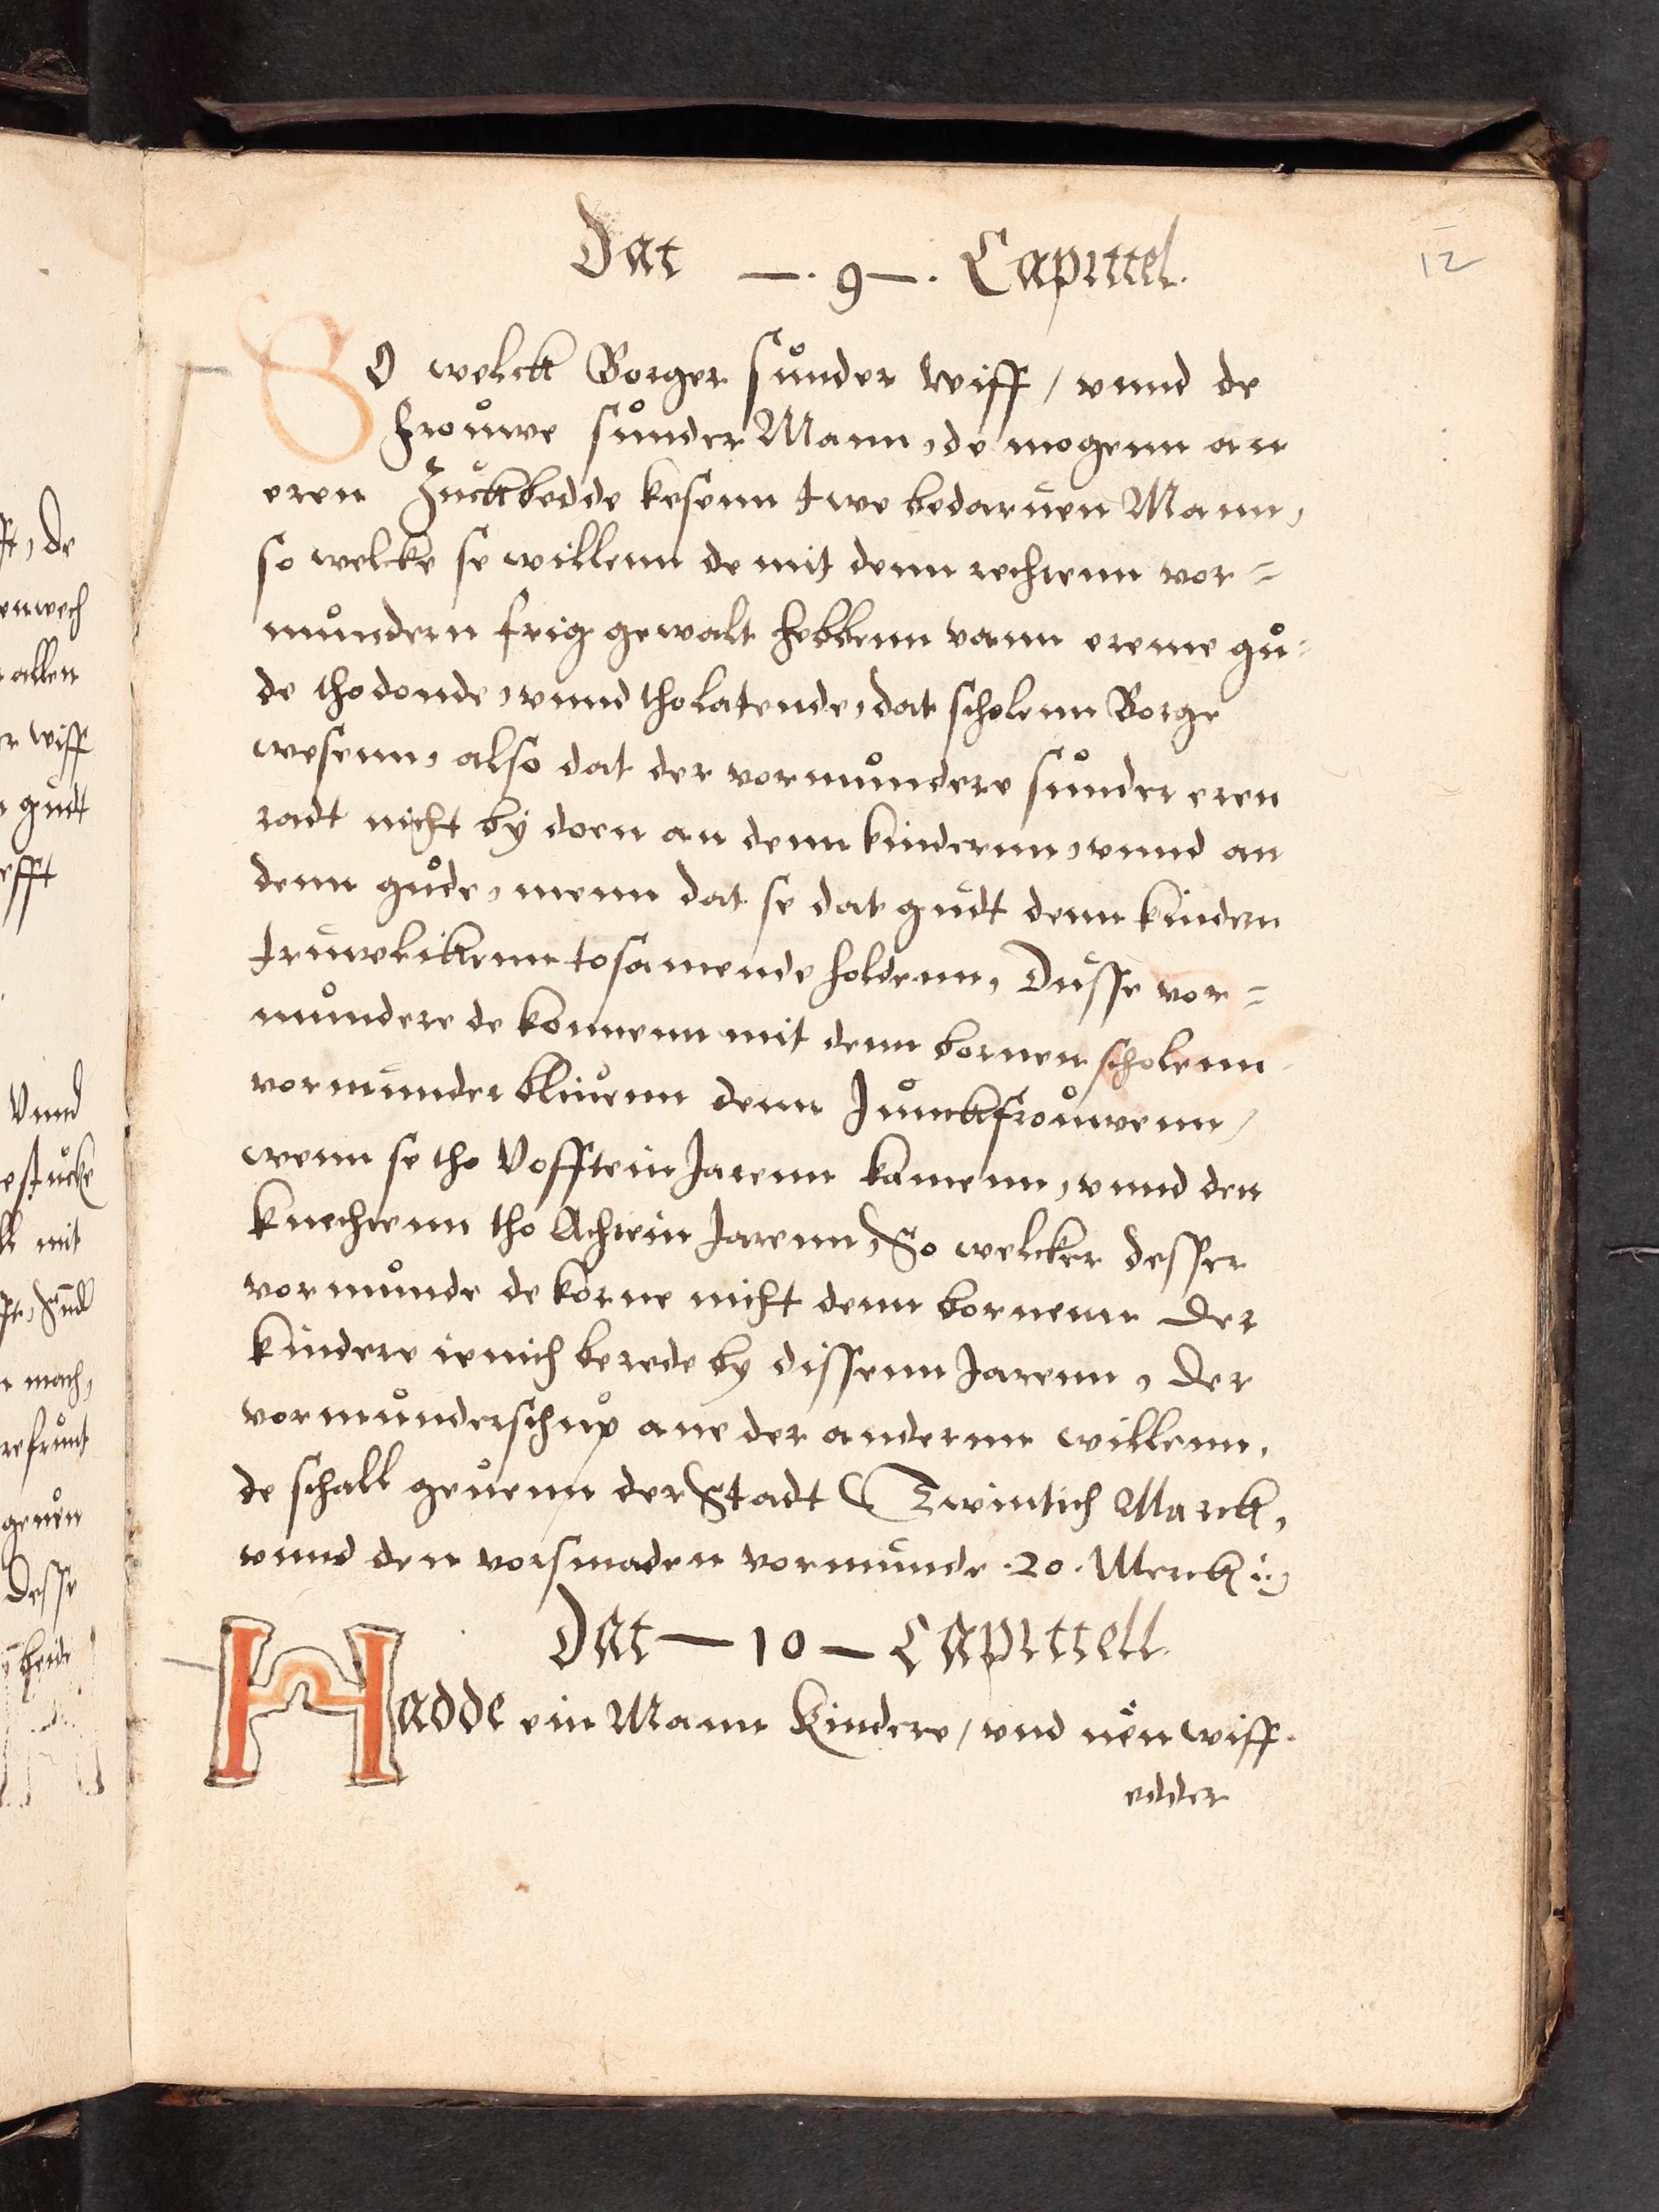 12
Dat —. 9 —. Capittel.
SO welck Borger sunder wiff / vnnd de
frouwe sunder Mann, de mogenn an
eren Zuckbedde kesenn twe bedaruen Mann,
so welcke se willenn de mit denn rechtenn vor=
mundern frig gewalt hebbenn vann ereme gu=
de thodonde, vnnd tholatende, dat scholenn Borge
wesenn, also dat der vormundere sunder eren
radt nicht by doen an denn kinderenn, vnnd an
denn gude, menn dat se dat gudt denn kindern
truwelikenn tosamende holdenn, Dusse vor=
mundere de kommenn mit denn bornen scholenn
vormunder bliuenn denn Junckfrouwenn /
wenn se tho Vofftein Jarenn kamenn, vnnd den
knechtenn tho Achtein Jarenn, So welcker desser
vormunde de korne nicht denn bornenn der
kindere ienich berede by dissenn Jarenn, der
vormunderschup ane der anderenn willenn,
de schall geuenn der Stadt Twintich Marck,
vnnd den vorsmaden vormunde .20. Marck
Dat — 10 — Capittell.
Hadde ein Mann Kindere / vnd nen wiff.
edder